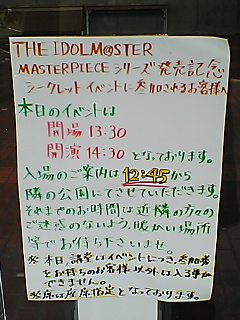 THE IDOLM@STER
MASTERPIECEシリーズ発売記念
シークレットイベントに参加されるお客様へ
本日のイベントは
開場 13:30
開演 14:30 となっております。
入場のご案内は12:45から
隣の公園にてさせていただきます。
それまでのお時間は近隣の方々の
ご迷惑のないよう、暖かい場所
等でお待ち下さいませ。
※本日、講堂はイベントにつき、参加券
をお持ちのお客様以外は入る事が
できません。
※席は座席指定となっております。